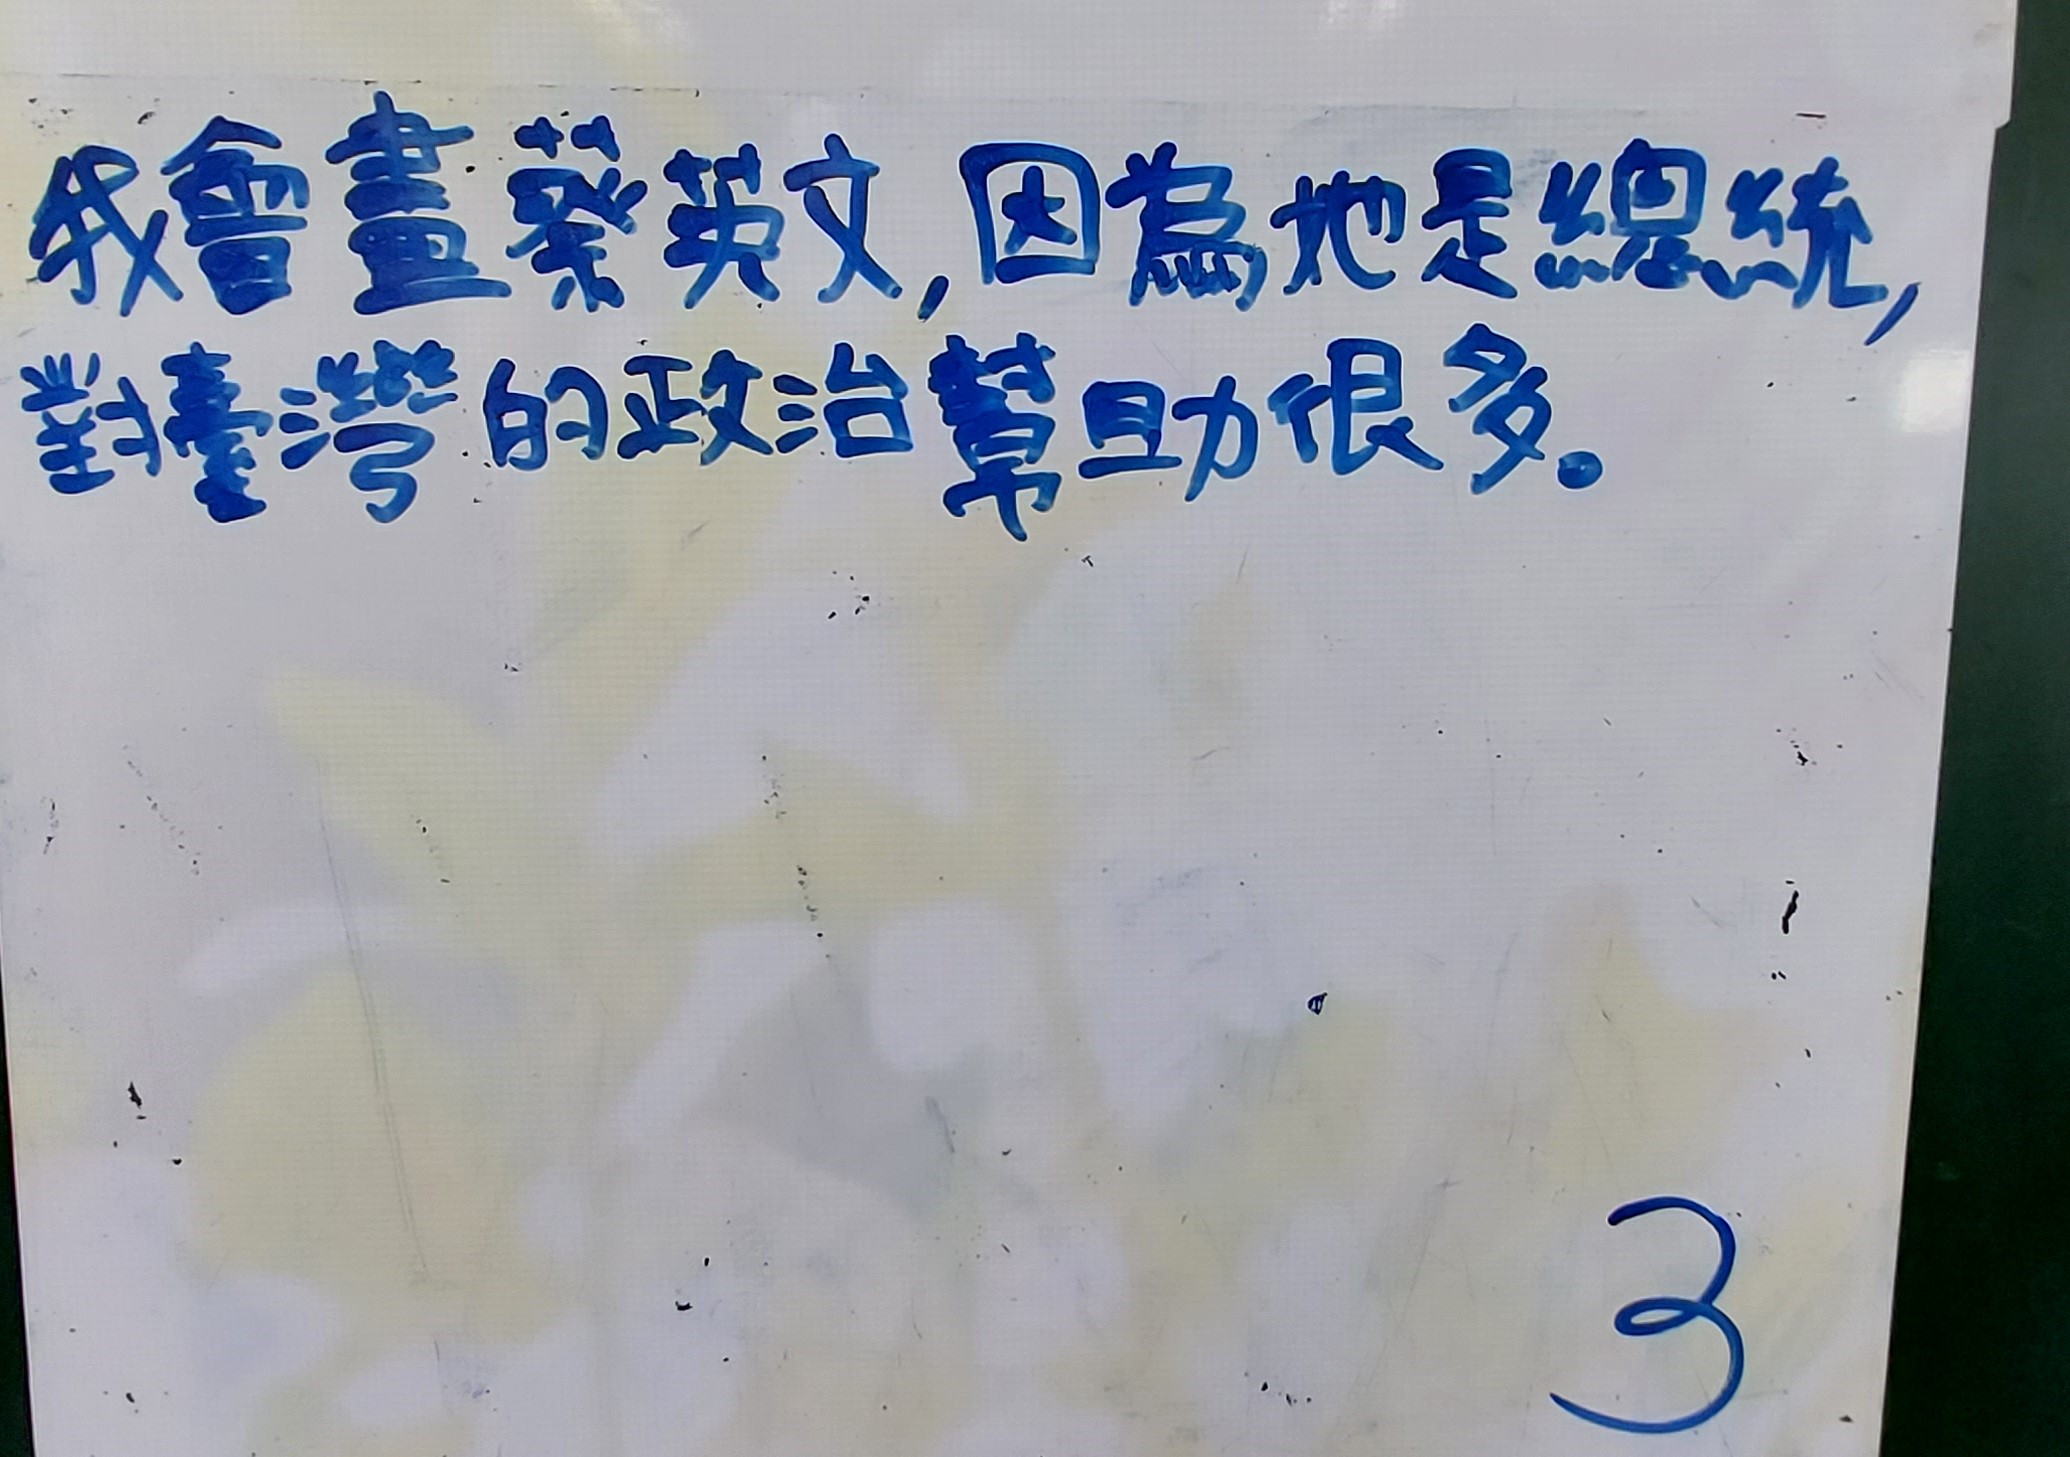 我會畫蔡英文,因為她是總統,
對臺灣的政治幫助很多。
3